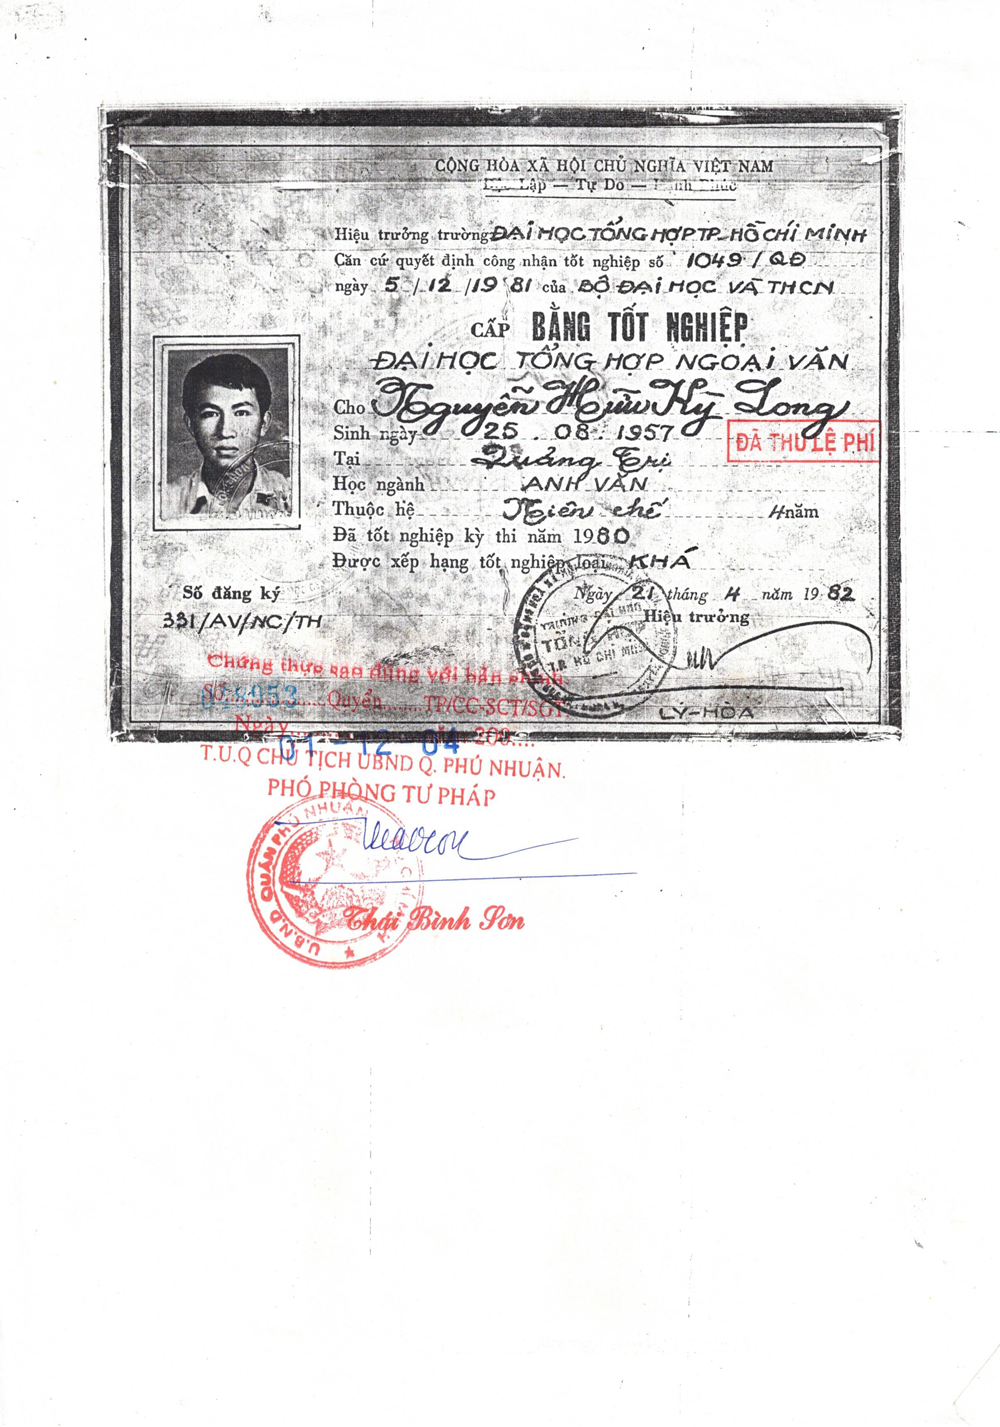 CỘNG HÒA XÃ HỘI CHỦ NGHĨA VIỆT NAM
Độc Lập — Tự Do — Hạnh Phúc
Hiệu trưởng trường ĐẠI HỌC TỔNG HỢP TP_HỒ CHÍ MINH
Căn cứ quyết định công nhận tốt nghiệp số 1049/QĐ
ngày 5/12/1981 của BỘ ĐẠI HỌC VÀ THCN
CẤP BẰNG TỐT NGHIỆP
ĐẠI HỌC TỔNG HỢP NGOẠI VĂN
Cho Nguyễn Hữu Kỳ Long
Sinh ngày 25.08.1957
ĐÃ THU LỆ PHÍ
Tại Quảng Trị
Học ngành ANH VĂN
Thuộc hệ Niên chế 4 năm
Đã tốt nghiệp kỳ thi năm 1980
Được xếp hạng tốt nghiệp loại KHÁ
Số đăng ký
331/AV/NC/TH
Ngày 21 tháng 4 năm 1982
Hiệu trưởng
TRƯỜNG ĐẠI HỌC
TỔNG HỢP
T.P HỒ CHÍ MINH
LÝ-HÒA
Chứng thực sao đúng với bản chính
Số Quyển TP/CC-SCT/SGT
Ngày 01-12-04 200
T.U.Q CHỦ TỊCH UBND Q. PHÚ NHUẬN.
PHÓ PHÒNG TƯ PHÁP
U.B.N.D. QUẬN PHÚ NHUẬN
Thái Bình Sơn